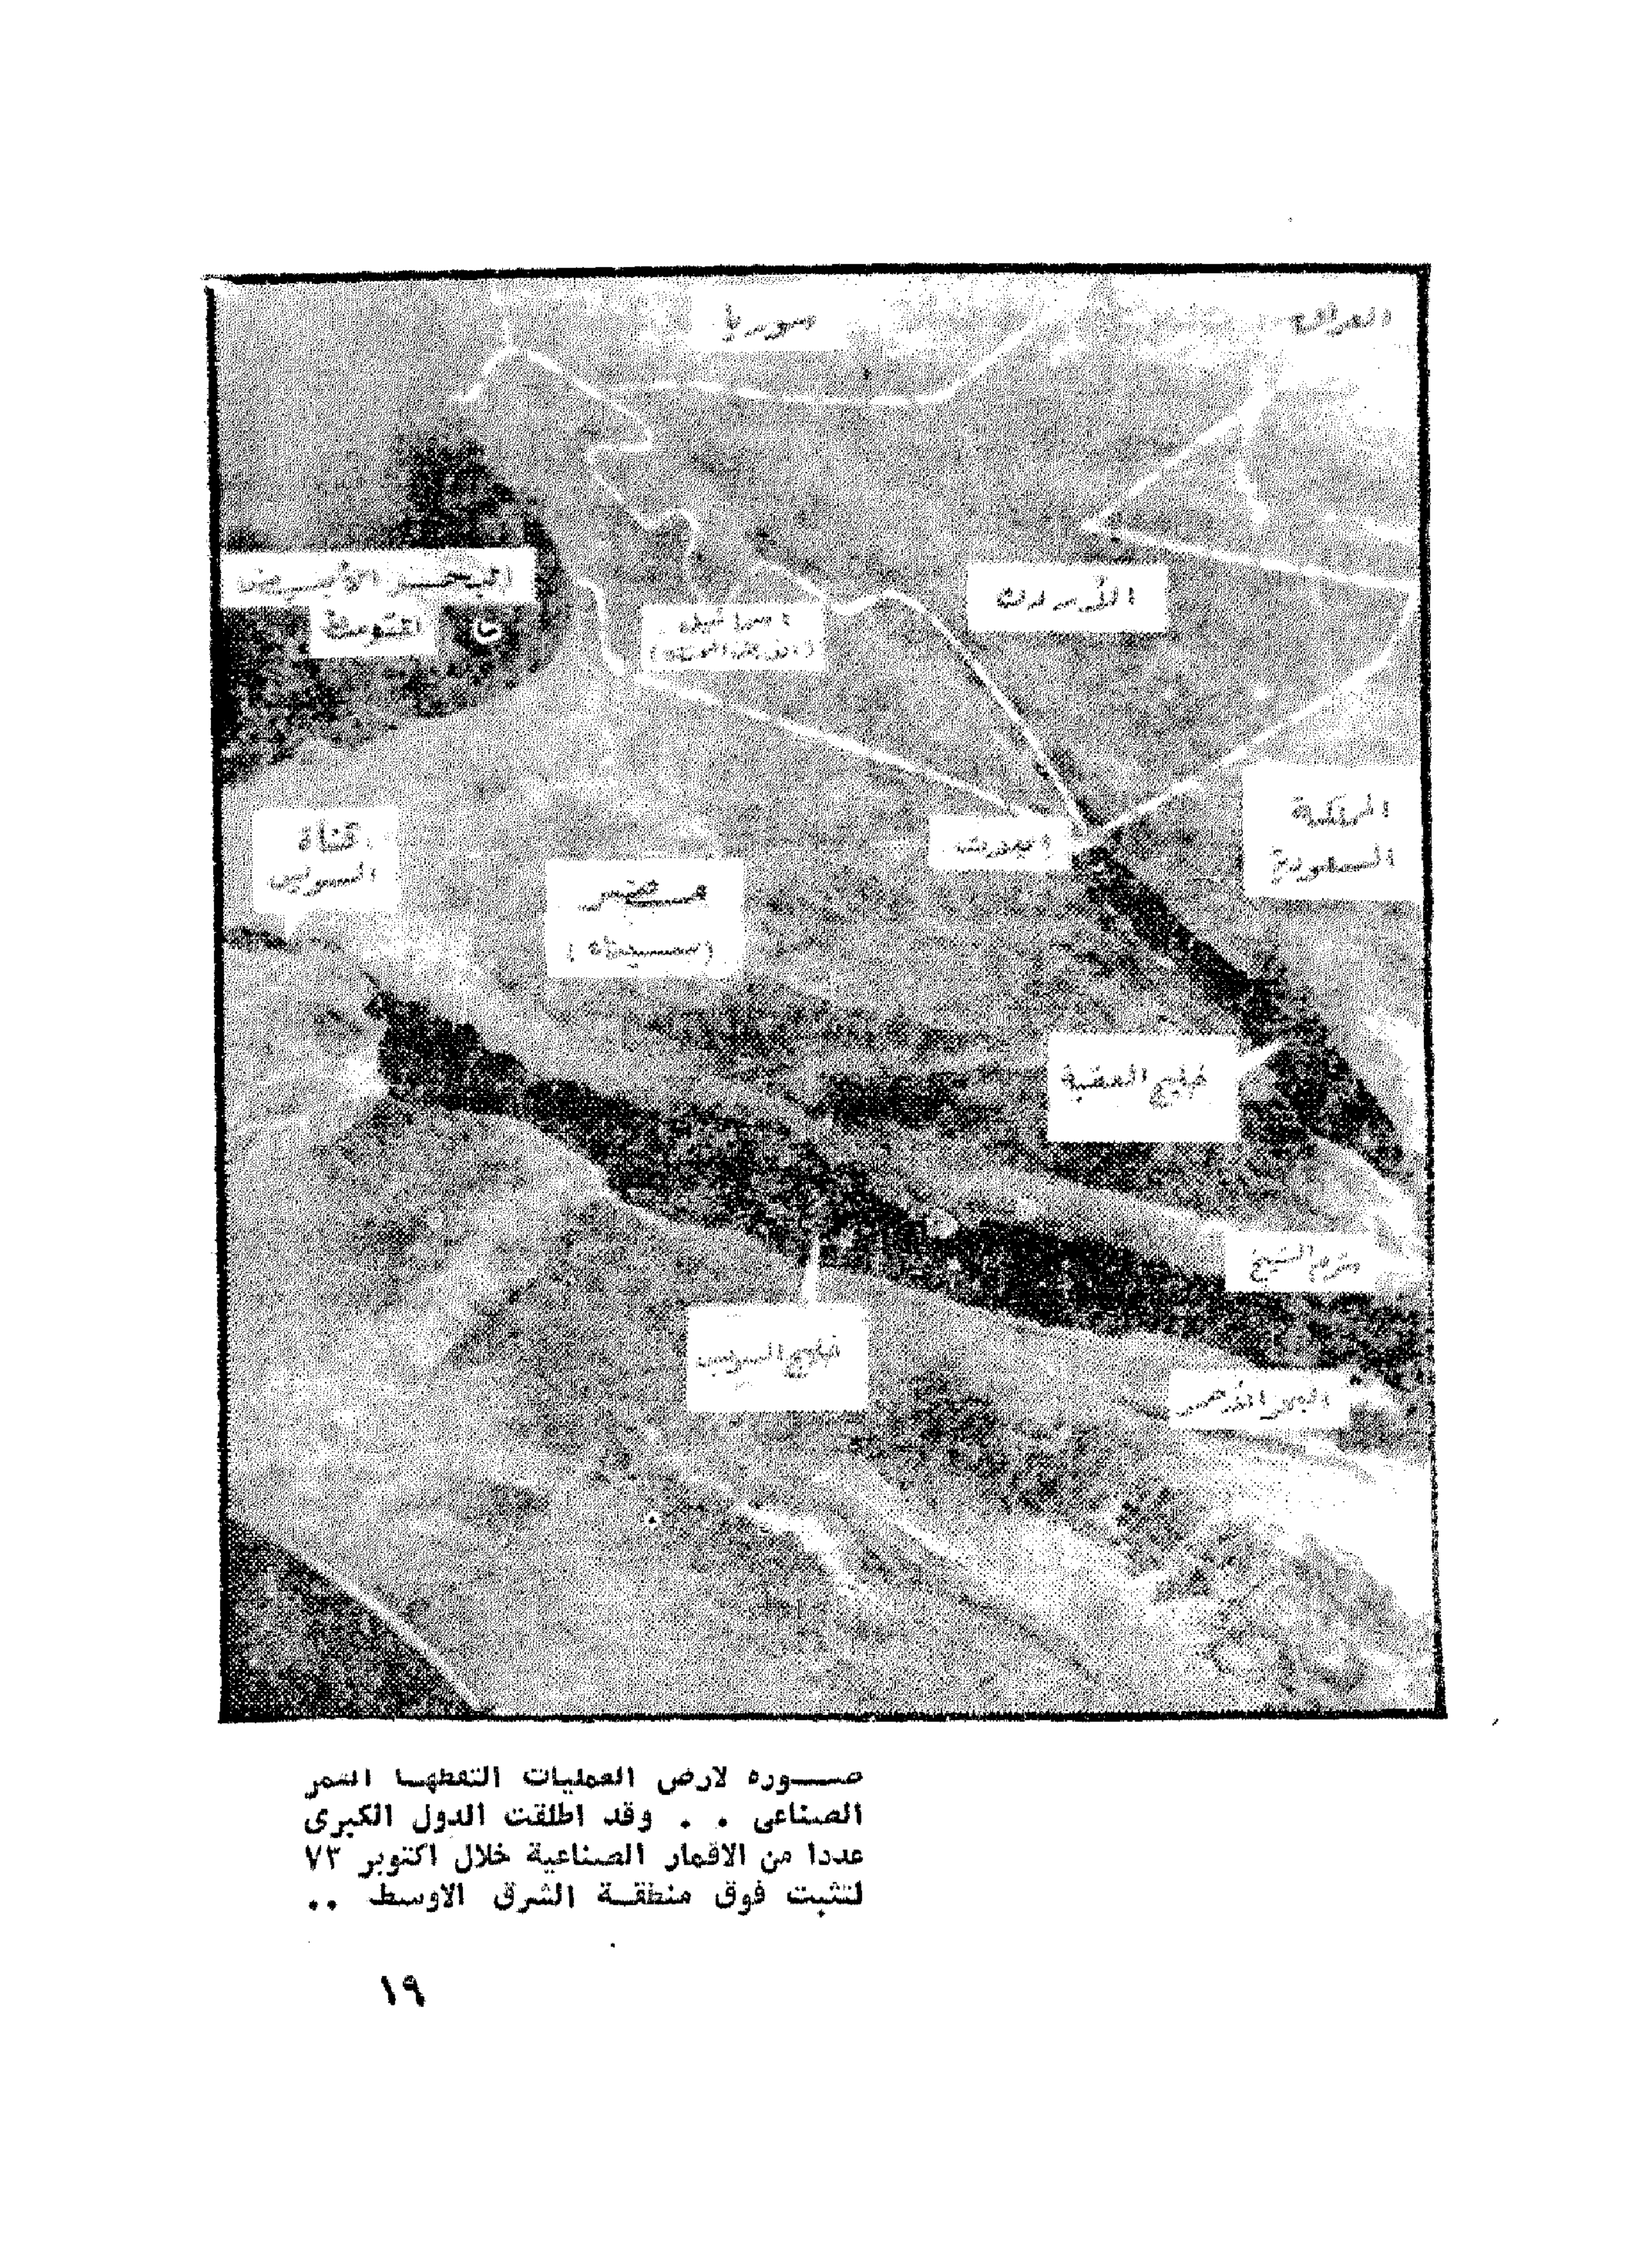 سوريا
العراق
البحر الأبيض
المتوسط
اسرائيل
الأردن
المملكة
السعودية
قناة
السويس
مصر
(سيناء)
خليج العقبة
شرم الشيخ
خليج السويس
البحر الأحمر
صـــوره لارض العمليات التقطهـا القمر
الصناعى . . وقد اطلقت الدول الكبرى
عددا من الاقمار الصناعية خلال اكتوبر ٧٣
لتثبت فوق منطقـة الشرق الاوسط ..
١٩